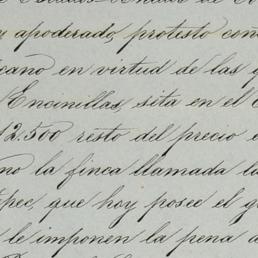 y apoderado, protesto con
cano en virtud de las
Encinillas, sita en el
12.500 resto del precio
no la finca llamada la
pec, que hoy posee el
le imponen la pena